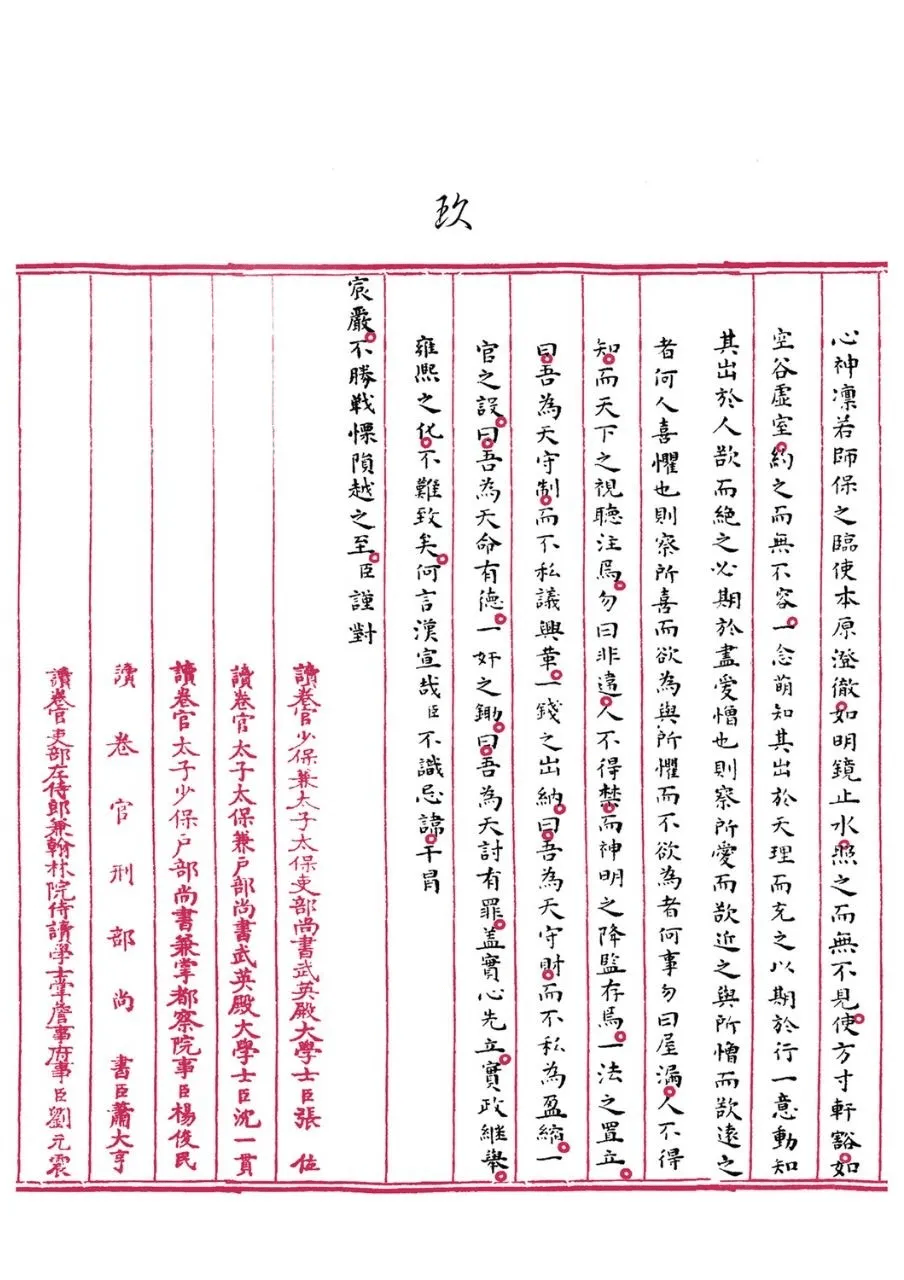 玖
心神凜若師保之臨使本原澄徹如明鏡止水照之而無不見使方寸軒豁如
空谷虛室約之而無不容一念萌知其出於天理而充之以期於行一意動知
其出於人欲而絕之必期於盡愛憎也則察所愛而欲近之與所憎而欲遠之
者何人喜懼也則察所喜而欲為與所懼而不欲為者何事勿曰屋漏人不得
知而天下之視聽注焉勿曰非違人不得禁而神明之降監存焉一法之置立
曰吾為天守制而不私議興革一錢之出納曰吾為天守財而不私為盈縮一
官之設曰吾為天命有德一奸之鋤曰吾為天討有罪盖實心先立實政継舉
雍熙之化不難致矣何言漢宣哉臣不識忌諱干冒
宸嚴不勝戰慄隕越之至臣謹對
讀卷官少保兼太子太保吏部尚書武英殿大學士臣張位
讀卷官太子太保兼戶部尚書武英殿大學士臣沈一貫
讀卷官太子少保戶部尚書兼掌都察院事臣楊俊民
讀卷官刑部尚書臣蕭大亨
讀卷官吏部左侍郎兼翰林院侍讀學士掌詹事府事臣劉元震